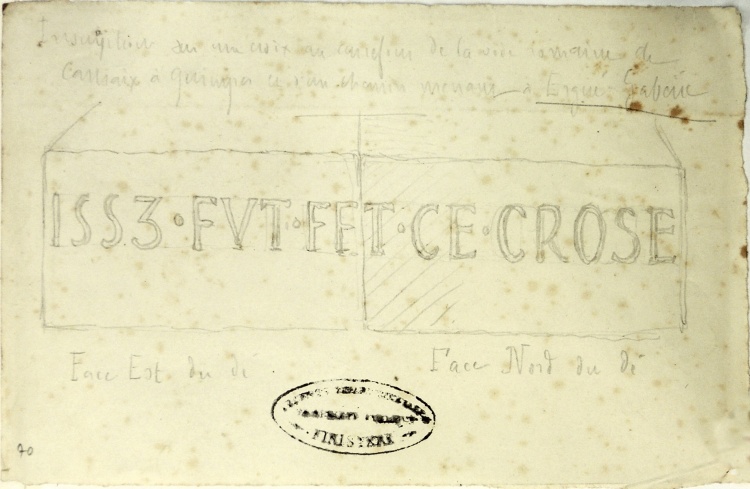 Inscription sur une croix au carrefour de la voie romaine de
Carhaix à Quimper et d'un chemin menant à Ergué Gabéric
ISS3·FVT·FET·CE·CROSE
Face Est du dé
Face Nord du dé
FINISTERE
70